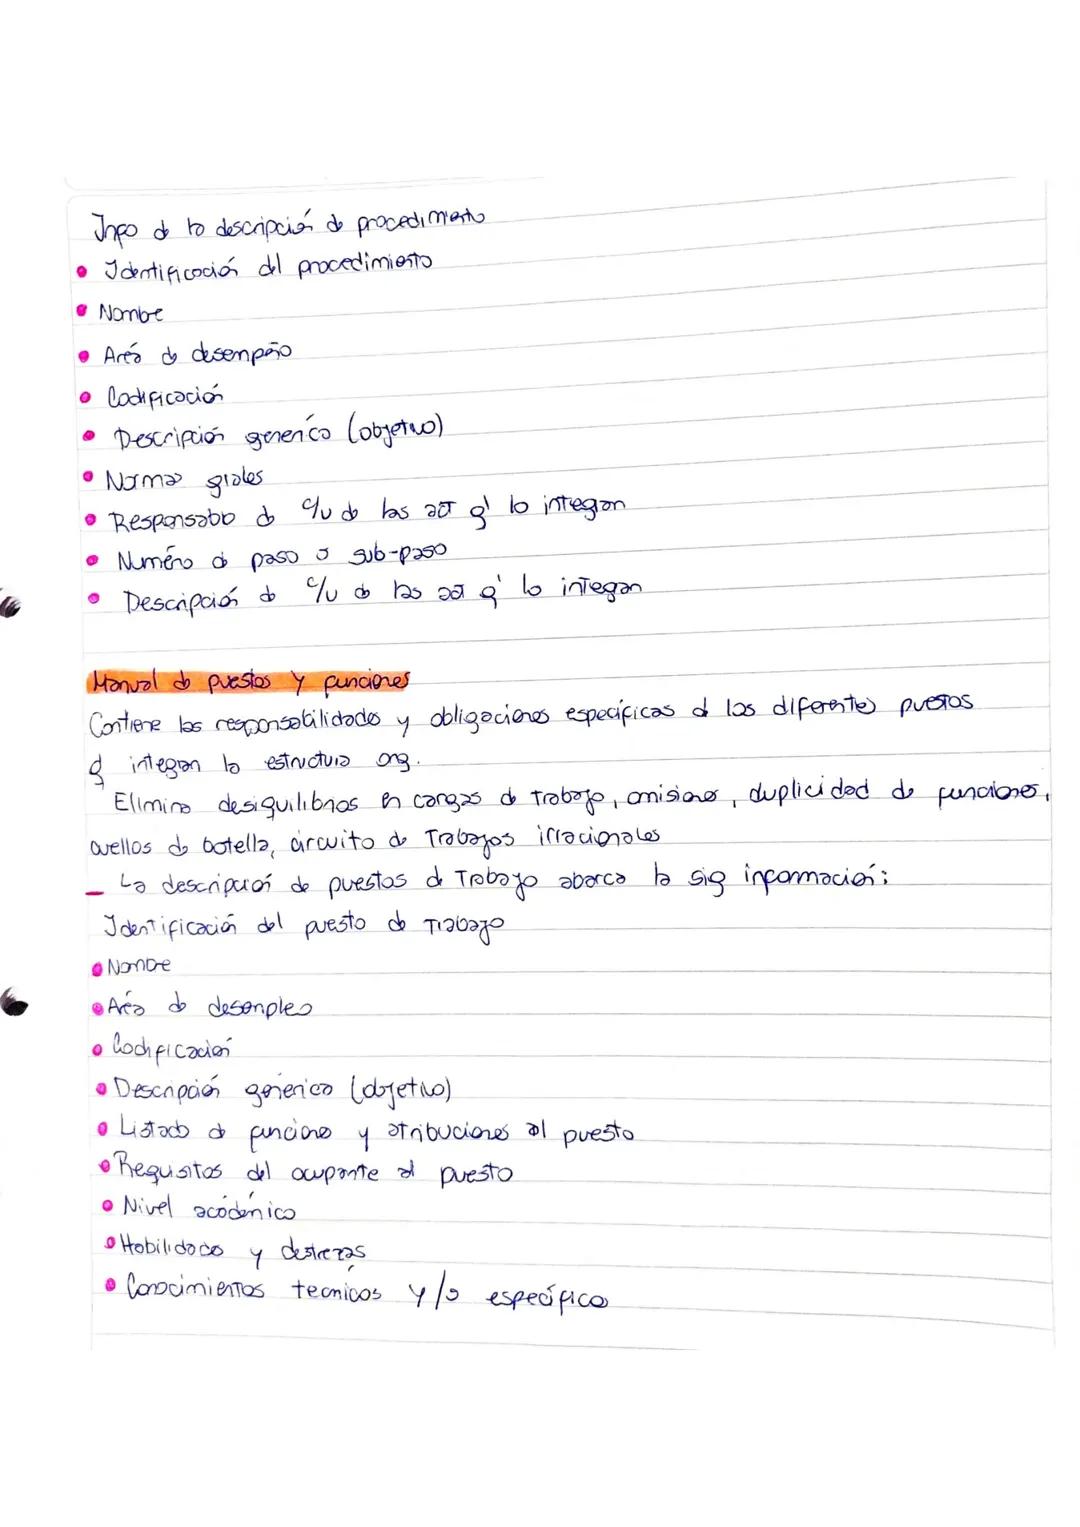 Info de la descripción de procedimiento
• Identificación del procedimiento
• Nombre
• Areá de desempeño
• Codificación
• Descripción generíca (objetivo)
• Normas grales
• Responsable de c/u de las act q' lo integran
• Numéro de paso o sub-paso
• Descripción de c/u de las act q' lo integan
Manual de puestos y funciones
Contiene las responsabilidades y obligaciones especificas d los diferentes puestos
q integran la estructura org.
Elimina desiquilibrios en cargas de trabajo, omisiones, duplicidad de funciones,
cuellos de botella, circuito de Trabajos irracionales
- La descripción de puestos de Trabajo abarca la sig información:
Identificación del puesto de Trabajo
• Nombre
• Areá de desempleo
• Codificación
• Descripción generica (objetivo)
• Listado de funciones y atribuciones al puesto
• Requisitos del ocupante al puesto
• Nivel académico
• Habilidades y destrezas
• Conocimientos tecnicos y/o específico